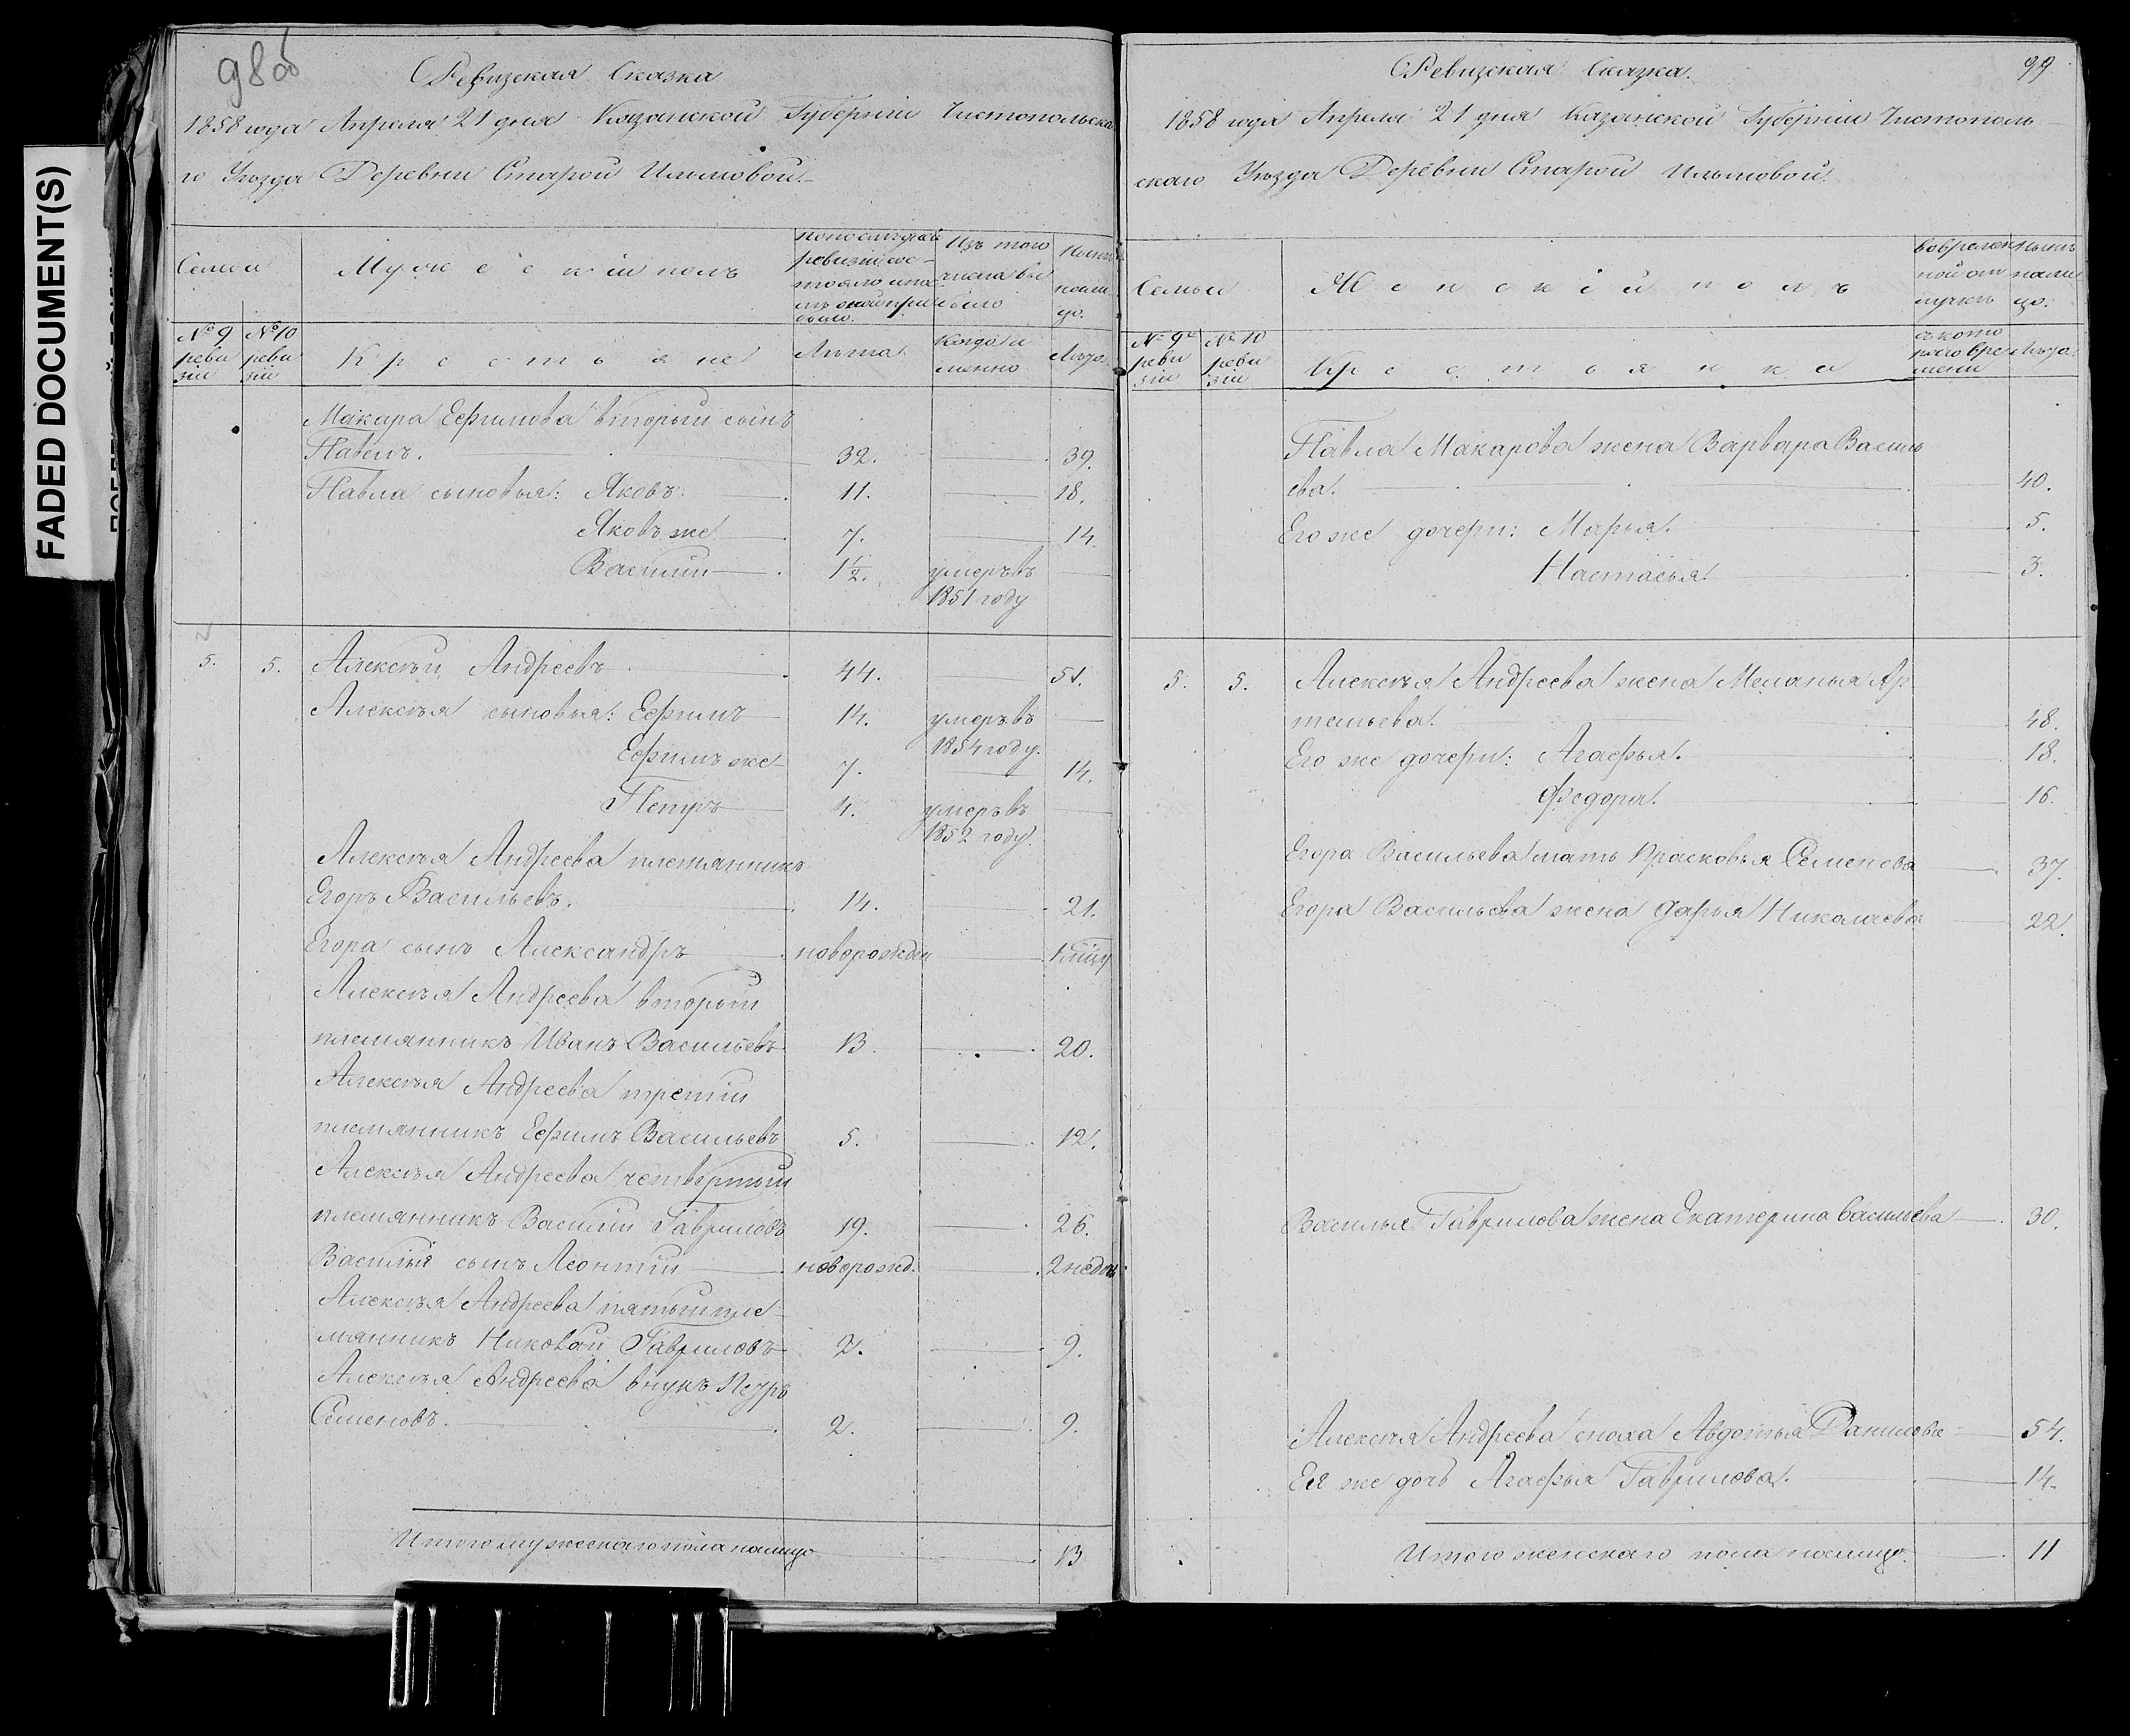 98об
Ревизская Сказка
1858 года Апреля 21 дня Казанской Губернии Чистопольска
го Уѣзда Деревни Старой Ильмовой
Семьи
Мужескій полъ
по последней
ревизіи сос-
тояло и по-
слѣ оной при
было.
Изъ того
числа вы
было
Ныне
на ли
цо.
№ 9
реви
зіи
№ 10
реви
зіи
Крестьяне
Лѣта.
Когда и
менно
Лѣта.
Макара Ефимова вторый сынъ
Павелъ. 32. 39.
Павла сыновья: Яковъ. 11. 18.
Яковъ же 7. 14.
Василій 1 1/2. умеръ въ
1851 году
5. 5. Алексѣй Андреевъ 44. 51.
Алексѣя сыновья: Ефимъ 14. умеръ въ
1854 году.
Ефимъ же 7. 14.
Петръ 4. умеръ въ
1852 году.
Алексѣя Андреева племянникъ
Егоръ Васильевъ. 14. 21.
Егора сынъ Александръ новорожден
Алексѣя Андреева вторый
племянникъ Иванъ Васильевъ 13. 20.
Алексѣя Андреева третій
племянникъ Ефимъ Васильевъ 5. 12.
Алексѣя Андреева четвертый
племянникъ Василій Гавриловъ 19. 26.
Василья сынъ Леонтій новорожд. 2 недѣл
Алексѣя Андреева пятый пле
мянникъ Николай Гавриловъ 2. 9.
Алексѣя Андреева внукъ Петръ
Семеновъ. 2. 9.
Итого мужескаго пола налицо 13
99
Ревизская Сказка.
1858 года Апреля 21 дня Казанской Губерніи Чистополь
скаго Уѣзда Деревни Старой Ильмовой.
Семьи
Женскій полъ
во времен
ной от
лучкѣ
ныне
нали
цо.
№ 9й
реви
зіи
№ 10
реви
зіи
Крестьянки
съ кото
раго вре
мени
Лѣта.
Павла Макарова жена Варвара Василь
ева. 40.
Его же дочери: Марья. 5.
Настасья 3.
5. 5. Алексѣя Андреева жена Меланья Ар
темьева. 48.
Его же дочери: Агафья. 18.
Федора. 16.
Егора Васильева мать Прасковья Семенова 37.
Егора Васильева жена Дарья Николаева 22.
Василья Гаврилова жена Екатерина Васильева 30.
Алексѣя Андреева сноха Авдотья Данилова 54.
Ея же дочь Агафья Гаврилова. 14.
Итого женскаго пола налицо. 11
FADED DOCUMENT(S)